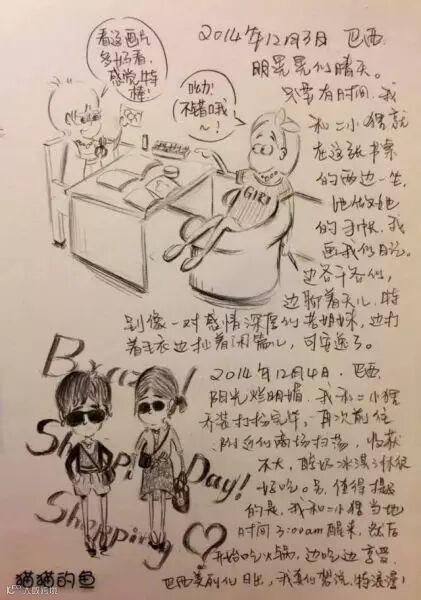 看这画片
多好看,
感觉特
棒!
哟!
不错哦
~!
GIRl
2014年12月3日 巴西.
明晃晃的晴天。
只要有时间,我
和二小猪就
在这张书桌
的两边一坐,
她做她
的手帐,我
画我的日记。
边各干各的,
边聊着天儿,特
别像一对感情深厚的老姐妹,边打
着毛衣边扯着闲篇儿,可安逸了。
Brazil
Shopping Day!
Shopping
2014年12月4日.巴西
阳光烂明媚,我和二小猪
乔装打扮完毕,再次前往
附近的商场扫荡,收获
不大,酸奶冰淇淋很
好吃。另,值得提
的是,我和二小猪当地
时间3:00am醒来,然后
开始吃火锅,边吃边享受
巴西美丽的日出,我真的想说,特浪漫!
猫猫的鱼
大数跨境